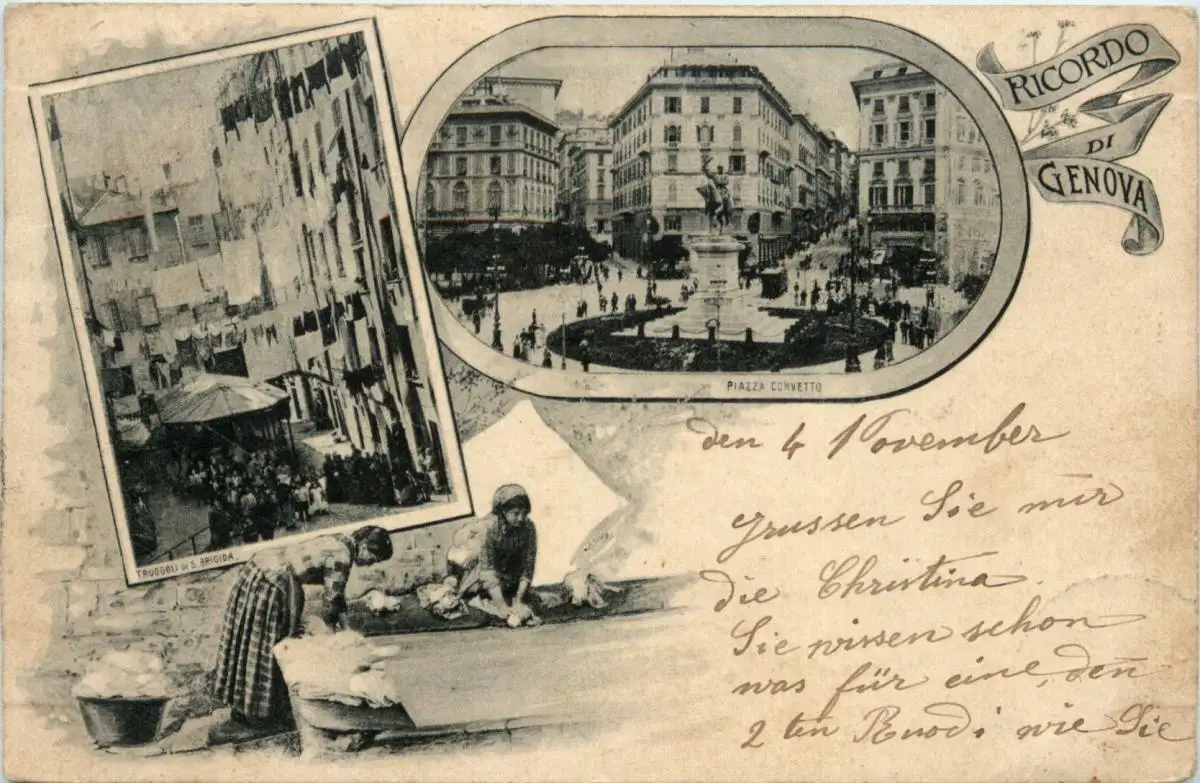 RICORDO
DI
GENOVA
PIAZZA CORVETTO
TRUOGOLI DI S. BRIGIDA
den 4 November
Grussen Sie mir
die Christina.
Sie wissen schon
was für eine, den
2ten Ruodi wie Sie